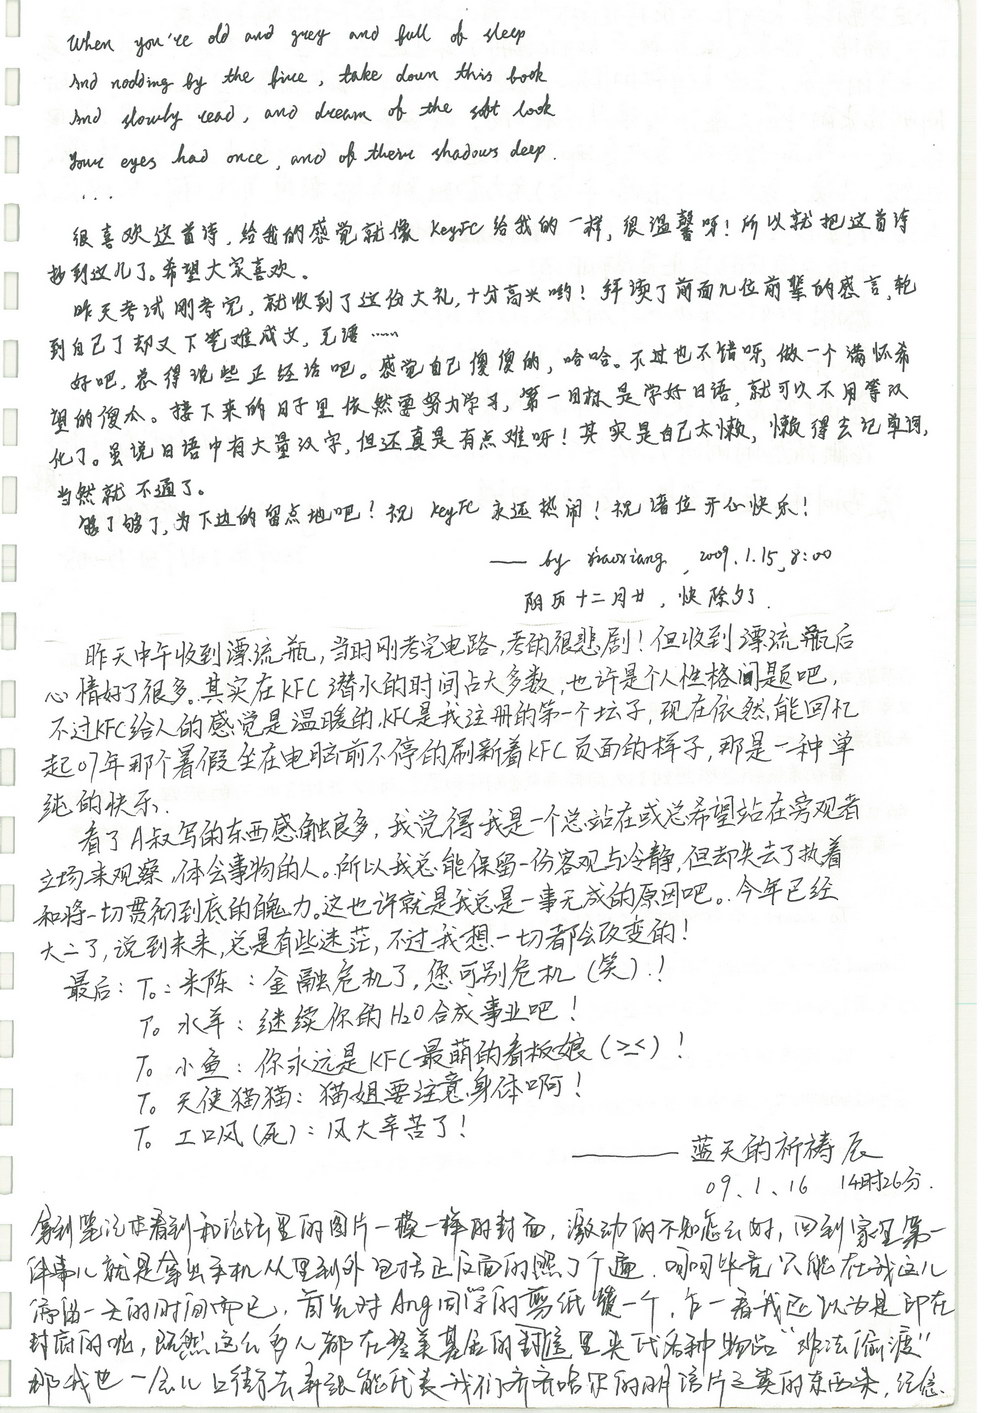 When you're old and grey and full of sleep
And nodding by the fire, take down this book
And slowly read, and dream of the soft look
Your eyes had once, and of there shadows deep.
...
很喜欢这首诗，给我的感觉就像 KeyFC 给我的一样，很温馨呀！所以就把这首诗
抄到这儿了。希望大家喜欢。
昨天考试刚考完，就收到了这份大礼，十分高兴哟！拜读了前面几位前辈的感言，轮
到自己了却又下笔难成文，无语……
好吧，总得说些正经话吧。感觉自己傻傻的，哈哈。不过也不错呀，做一个满怀希
望的傻瓜。接下来的日子里依然要努力学习，第一目标是学好日语，就可以不用等汉
化了。虽说日语中有大量汉字，但还真是有点难呀！其实是自己太懒，懒得去记单词，
当然就不通了。
够了够了，为下边的留点地吧！祝 KeyFC 永远热闹！祝诸位开心快乐！
—— by xiaoxiang, 2009.1.15, 8:00
阴历十二月廿，快除夕了.
昨天中午收到漂流瓶，当时刚考完电路，考的很悲剧！但收到漂流瓶后
心情好了很多。其实在KFC潜水的时间占大多数，也许是个人性格问题吧，
不过KFC给人的感觉是温暖的，KFC是我注册的第一个坛子，现在依然能回忆
起07年那个暑假坐在电脑前不停的刷新着KFC页面的样子，那是一种单
纯的快乐.
看了A叔写的东西感触良多，我觉得我是一个总站在或总希望站在旁观者
立场来观察、体会事物的人。所以我总能保留一份客观与冷静，但却失去了执着
和将一切贯彻到底的魄力。这也许就是我总是一事无成的原因吧。今年已经
大二了，说到未来，总是有些迷茫，不过我想一切都会改变的！
最后：To：米陈：金融危机了，您可别危机（笑）！
To 水羊：继续你的H2O合成事业吧！
To 小鱼：你永远是KFC最萌的看板娘（≥≤）！
To 天使猫猫：猫姐要注意身体啊！
To 工口风（死）：风大辛苦了！
———— 蓝天的祈祷 辰
09.1.16 14时26分.
拿到笔记本看到和论坛里的图片一模一样的封面，激动的不知怎么好，回到家里第一
件事儿就是拿出手机从里到外包括正反面的照了个遍. 呵呵毕竟只能在我这儿
停留一天的时间而已，首先对Ang同学的剪纸赞一个，乍一看我还以为是印在
封底的呢，既然这么多人都在整美其名的封信里夹代各种物品“非法偷渡”
那我也一会儿上街去寻张能代表我们齐齐哈尔的明信片之类的东西来，